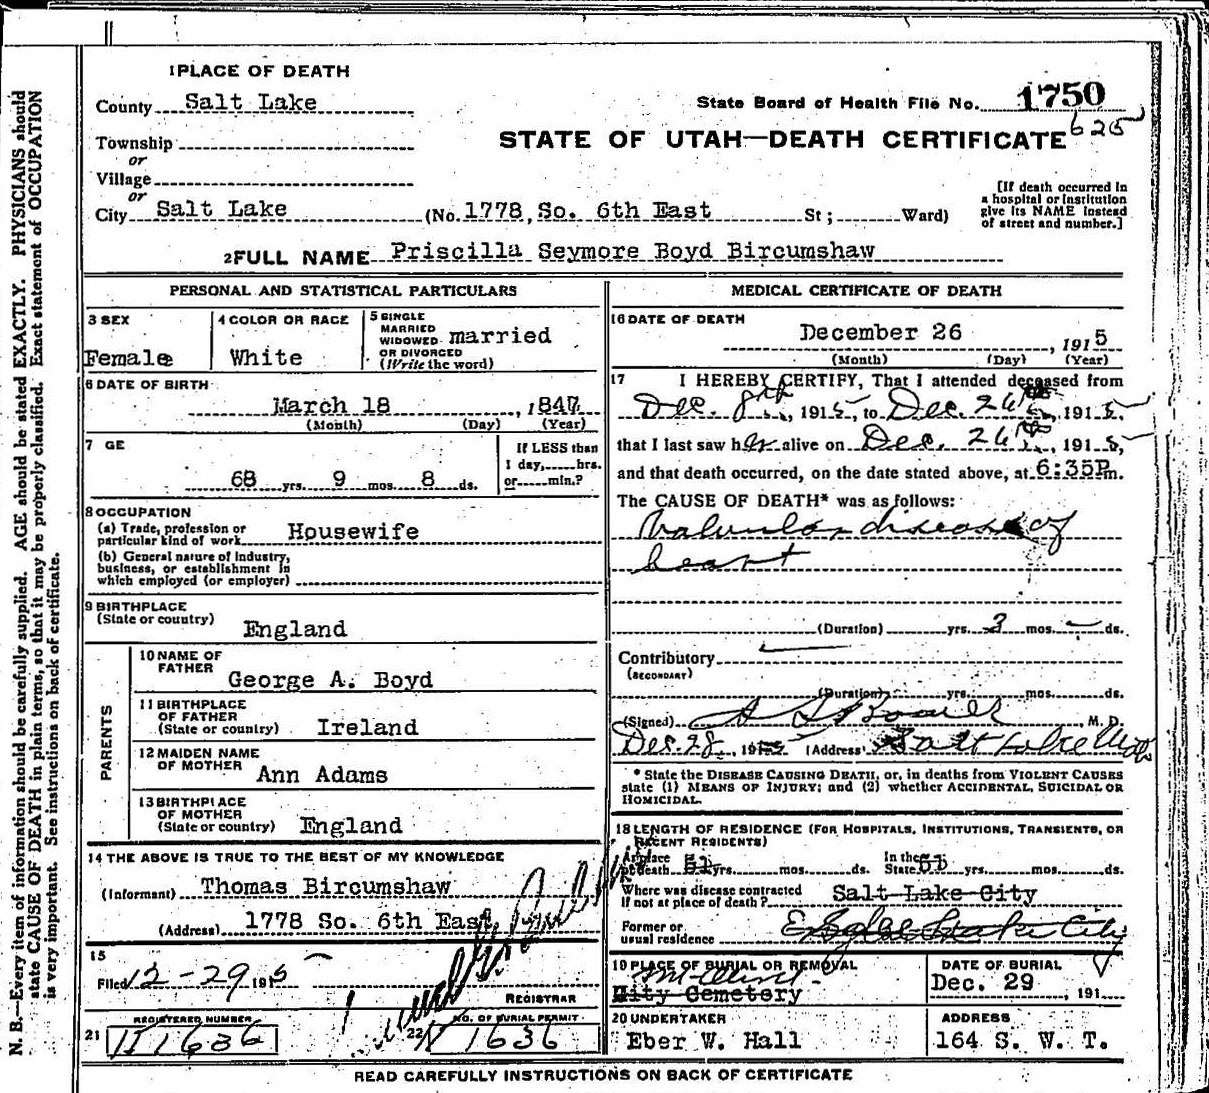 N. B.—Every item of information should be carefully supplied. AGE should be stated EXACTLY. PHYSICIANS should
state CAUSE OF DEATH in plain terms, so that it may be properly classified. Exact statement of OCCUPATION
is very important. See instructions on back of certificate.
1 PLACE OF DEATH
County Salt Lake
State Board of Health File No. 1750
625
Township
STATE OF UTAH—DEATH CERTIFICATE
or
Village
or
City Salt Lake (No. 1778, So. 6th East St; Ward)
[If death occurred in
a hospital or institution
give its NAME instead
of street and number.]
2 FULL NAME Priscilla Seymore Boyd Bircumshaw
PERSONAL AND STATISTICAL PARTICULARS
3 SEX
Female
4 COLOR OR RACE
White
5 SINGLE
MARRIED
WIDOWED
OR DIVORCED
(Write the word)
married
6 DATE OF BIRTH
March 18, 1847
(Month) (Day) (Year)
7 GE
68 yrs. 9 mos. 8 ds.
If LESS than
1 day, hrs.
or min.?
8 OCCUPATION
(a) Trade, profession or
particular kind of work Housewife
(b) General nature of industry,
business, or establishment in
which employed (or employer)
9 BIRTHPLACE
(State or country)
England
PARENTS
10 NAME OF
FATHER
George A. Boyd
11 BIRTHPLACE
OF FATHER
(State or country) Ireland
12 MAIDEN NAME
OF MOTHER
Ann Adams
13 BIRTHPLACE
OF MOTHER
(State or country) England
14 THE ABOVE IS TRUE TO THE BEST OF MY KNOWLEDGE
(Informant) Thomas Bircumshaw
(Address) 1778 So. 6th East
15
Filed 12-29 1915
REGISTRAR
REGISTERED NUMBER
21 1636
NO. OF BURIAL PERMIT
22 1636
MEDICAL CERTIFICATE OF DEATH
16 DATE OF DEATH
December 26, 1915
(Month) (Day) (Year)
17 I HEREBY CERTIFY, That I attended deceased from
Dec. 8th, 1915, to Dec. 26th, 1915,
that I last saw her alive on Dec. 26th, 1915,
and that death occurred, on the date stated above, at 6:35P m.
The CAUSE OF DEATH* was as follows:
Valvular disease of
heart
(Duration) yrs. 3 mos. — ds.
Contributory
(SECONDARY)
(Duration) yrs. mos. ds.
(Signed) M. D.
Dec. 28, 1915 (Address) Salt Lake Utah
* State the DISEASE CAUSING DEATH, or, in deaths from VIOLENT CAUSES
state (1) MEANS OF INJURY; and (2) whether ACCIDENTAL, SUICIDAL OR
HOMICIDAL.
18 LENGTH OF RESIDENCE (FOR HOSPITALS, INSTITUTIONS, TRANSIENTS, OR
RECENT RESIDENTS)
At place
of death 51 yrs. mos. ds.
In the
State 51 yrs. mos. ds.
Where was disease contracted
If not at place of death? Salt Lake City
Former or
usual residence Lake City
19 PLACE OF BURIAL OR REMOVAL
City Cemetery
DATE OF BURIAL
Dec. 29, 191
20 UNDERTAKER
Eber W. Hall
ADDRESS
164 S. W. T.
READ CAREFULLY INSTRUCTIONS ON BACK OF CERTIFICATE